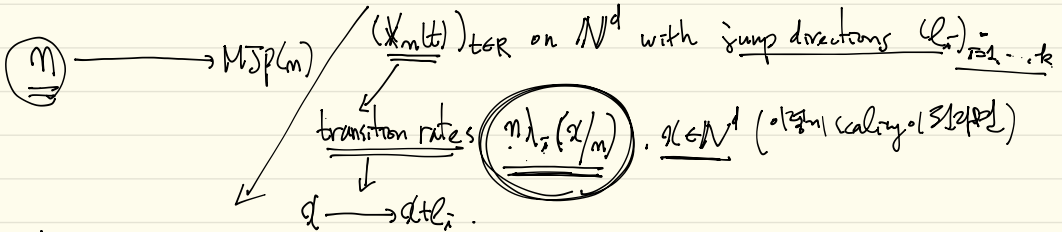 n → MJP(n) / (X_n(t))_{t∈R} on ℕ^d with jump directions (l_i)_{i=1,...,k}
transition rates nλ_i(x/n). x∈ℕ^d ( scaling
x → x+l_i.